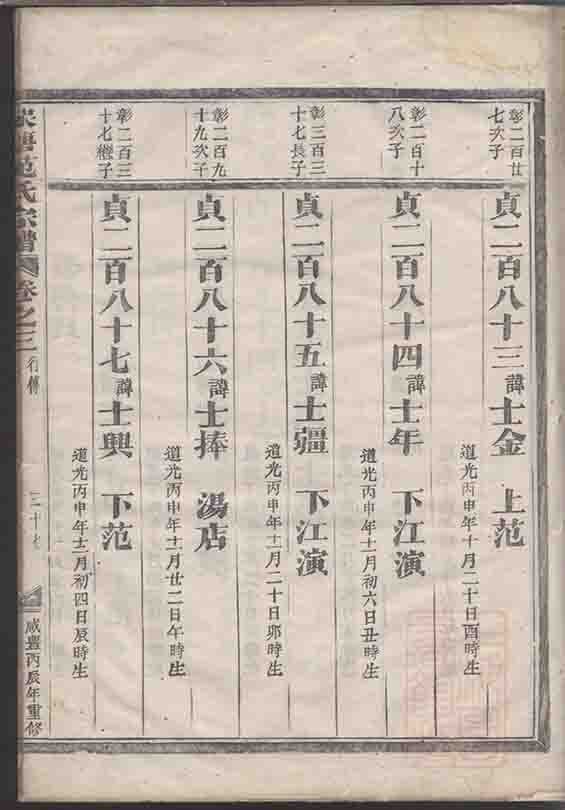 彰二百廿
七次子
貞二百八十三諱士金 上范
道光丙申年十月二十日酉時生
彰二百十
八次子
貞二百八十四諱士年 下江演
道光丙申年十一月初六日丑時生
彰三百三
十七長子
貞二百八十五諱士疆 下江演
道光丙申年十一月二十日卯時生
彰二百九
十九次子
貞二百八十六諱士捧 湯店
道光丙申年十一月廿二日午時生
彰二百三
十七繼子
貞二百八十七諱士興 下范
道光丙申年十二月初四日辰時生
范氏宗譜 卷之三 行傳
三十七
咸豐丙辰年重修